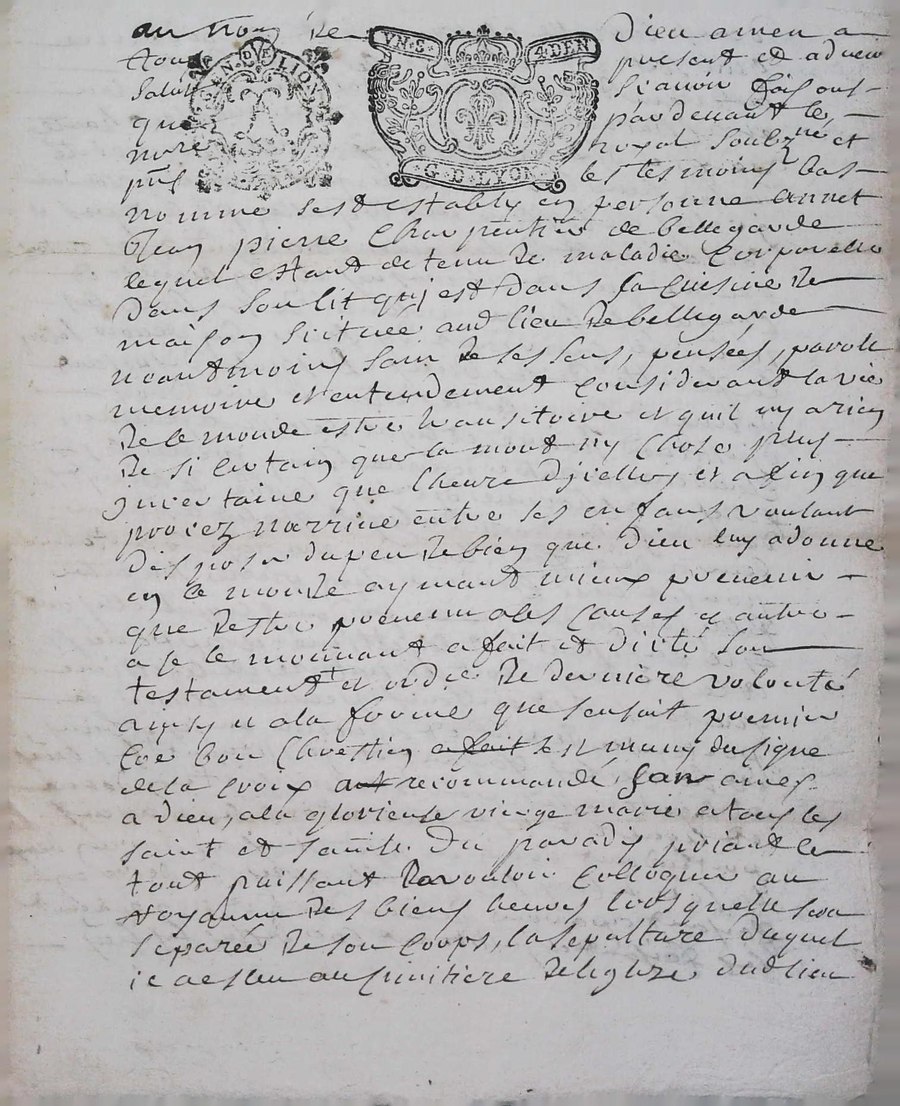 au nom de Dieu amen a
tous present et advenir
salut sçavoir faisons
que pardevant le
nore royal soubzne et
pnts les tesmoins bas
nommé sest estably en personne annet
Jean pierre Charpentier de bellegarde
lequel estant detenu de maladie corporelle
dans son lit quj est dans sa cuisine de
maison scituée aud lieu de bellegarde
neantmoins sain de ses sens, pensées, parolle
memoire et entendement considerant la vie
de le monde estre transitoire et quil ny a rien
de si certain que la mort ny chose plus
incertaine que lheure dicelle, et afin que
procez narrive entre ses enfans voulant
disposer du peu de bien que Dieu luy a donne
en le monde aymant mieux prevenir
que destre prevenu a les causes et autre
a se le mouvant a fait et dicté son
testament et ordre de derniere volonté
ainsy et a la forme que sensuit premier
coe bon Chrestien a fait sest muny du signe
de la croix a recommandé son ames
a Dieu, a la glorieuse vierge marie a tous les
saint et sainte du paradis priant le
tout puissant de vouloir colloquer au
royaume des biens heureux lorsquelle sera
separée de son corps, la sepulture duquel
il a esleu au cimitiere de leglize dud lieu
VN.S. 4.DEN
G.D.LYON
DEN.D LION